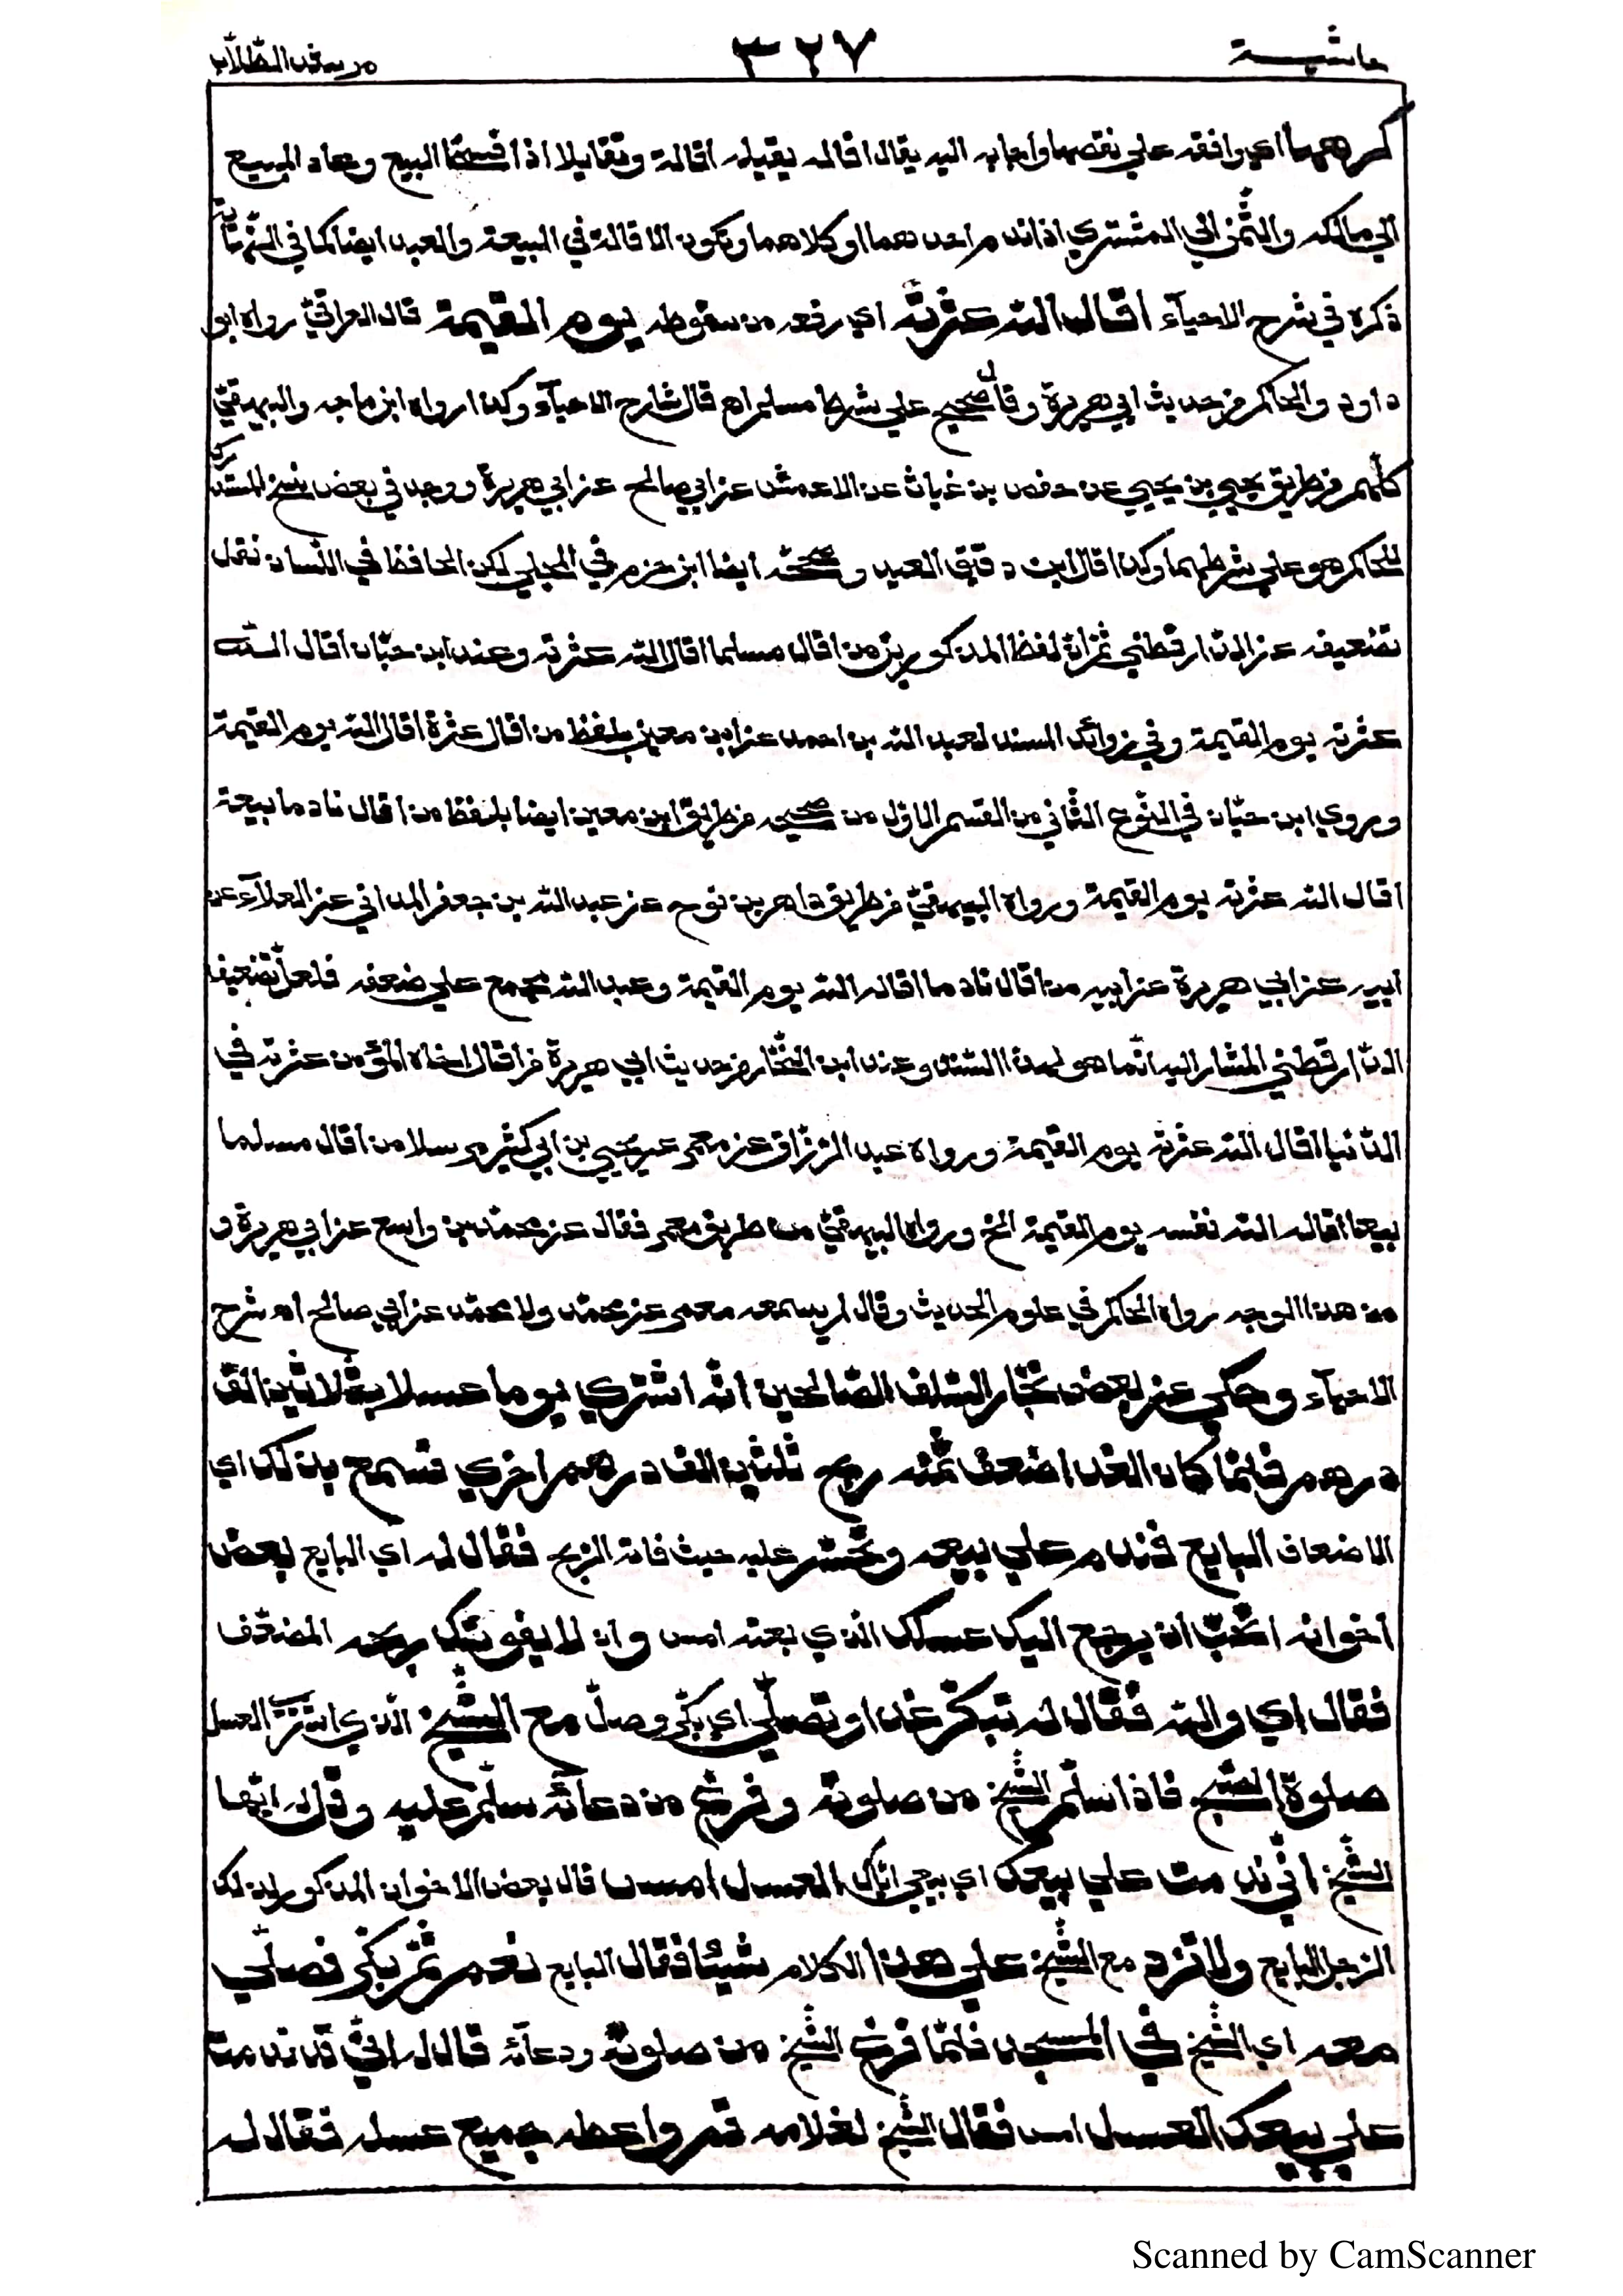 حاشية
٣٢٧
مرشد الطّلّاب
كرهها اي وافقه علي نقضها واجابه اليه يقال اقاله يقيله اقالة وتقايلا اذا فسخا البيع وعاد المبيع
الي مالكه والثّمن الي المشتري اذا ندم احدهما او كلاهما وتكون الاقالة في البيعة والعهد ايضا كما في النّهاية
ذكره في شرح الاحيآء اقال الله عثرته اي رفعه من سقوطه يوم القيمة قال العراقيّ رواه ابو
داود والحاكم من حديث ابي هريرة وقال صحيح علي شرط مسلم اه قال شارح الاحيآء وكذا رواه ابن ماجه والبيهقيّ
كلّهم من طريق يحيي بن يحيي عن حفص بن غياث عن الاعمش عن ابي صالح عن ابي هريرة ووجد في بعض نسخ المستدرك
للحاكم هو علي شرطهما وكذا قال ابن دقيق العيد وصحّحه ايضا ابن حزم في المحلي لكن الحافظ في اللّسان نقل
تضعيفه عن الدّارقطني ثمّ انّ لفظ المذكورين من اقال مسلما اقال الله عثرته وعند ابن حبّان اقال الله
عثرته يوم القيمة وفي زوآئد المسند لعبد الله بن احمد عن ابن معين بلفظ من اقال عثرة اقال الله يوم القيمة
وروي ابن حبّان في النّوع الثّاني من القسم الاوّل من صحيحه من طريق ابن معين ايضا بلفظ من اقال نادما بيعة
اقال الله عثرته يوم القيمة ورواه البيهقيّ من طريق داهر بن نوح عن عبد الله بن جعفر المداني عن العلآء عن
ابيه عن ابي هريرة عن ابيه من اقال نادما اقاله الله يوم القيمة وعبد الله مجمع علي ضعفه فلعلّ تضعيف
الدّارقطني المشار اليه انّما هو لهذا السّند وعند ابن النّجّار من حديث ابي هريرة من اقال اخاه المؤمن عثرته في
الدّنيا اقال الله عثرته يوم القيمة ورواه عبد الرّزّاق عن معمر عن يحيي بن ابي كثير مرسلا من اقال مسلما
بيعا اقاله الله نفسه يوم القيمة الخ ورواه البيهقيّ من طريق معمر فقال عن محمّد بن واسع عن ابي هريرة و
من هذا الوجه رواه الحاكم في علوم الحديث وقال لم يسمعه معمر عن محمّد ولا محمّد عن ابي صالح اه شرح
الاحيآء وحكي عن بعض تجّار السّلف الصّالحين انّه اشتري يوما عسلا بثلاثين الف
درهم فلمّا كان الغد اضعف ثمنه ربح ثلثين الف درهم اخري فسمع بذلك اي
الاضعاف البايع فندم علي بيعه وتحسّر عليه حيث فاته الرّبح فقال له اي البايع بعض
اخوانه اتحبّ ان يرجع اليك عسلك الذي بعته امس وان لا يفوتك ربحه المضعّف
فقال اي والله فقال له تبكّر غدا وتصلّي اي بكّر وصلّ مع الشّيخ الّذي اشتري العسل
صلوة الصّبح فاذا سلّم الشّيخ من صلوته وفرغ من دعآئه سلّم عليه وقل له ايّها
الشّيخ انّي ندمت علي بيعك اي بيعي ايّاك العسل امس قال بعض الاخوان المذكور لذلك
الرّجل البايع ولا تزد مع الشّيخ علي هذا الكلام شيئا فقال البايع نعم ثمّ بكّر فصلّي
معه اي الشّيخ في المسجد فلمّا فرغ الشّيخ من صلوته ودعآئه قال له انّي قد ندمت
علي بيعك العسل امس فقال الشّيخ لغلامه قم واعطه جميع عسله فقال له
Scanned by CamScanner